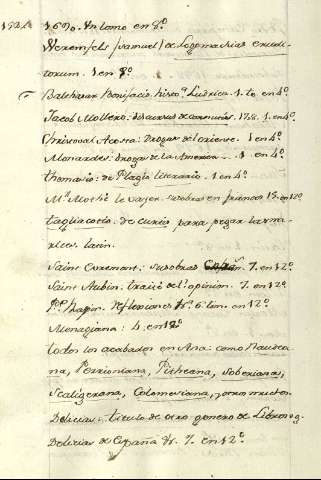 1690. Un tomo en 8º
Werensfels (Samuel) de Logomachias erudi-
torum. 1 en 8º
Balthasar Bonifacio. histoª Ludicra. 1. tº en 4º
Jacob Mollero: discursus de cornutis, 1. en 4º
Christoval Acosta: Drogas del oriente. 1 en 4º
Monardes: Drogas de la America . . 1. en 4º
thomasio: de Plagio literario. 1 en 4º
Mª Mothe le vayer. sus obras en frances 15. en 12º
tagliacocio. de curtis para pegar las na-
rices. latin.
Saint Evremont: sus obras 7. en 12º
Saint Aubin: traité de l'opinion. 7. en 12º
Pe. Rapin. Reflexiones &. 6 tom. en 12º
Menagiana: 4. en 12º
todos los acabados en Ana: como Naudea-
na, Perroniana, Pitheana, Soberiana,
Scaligerana, Colomesiana, y otros muchos
Delicias: titulo de otro genero de Libros. v.g.
Delicias de España &. 7. en 12º